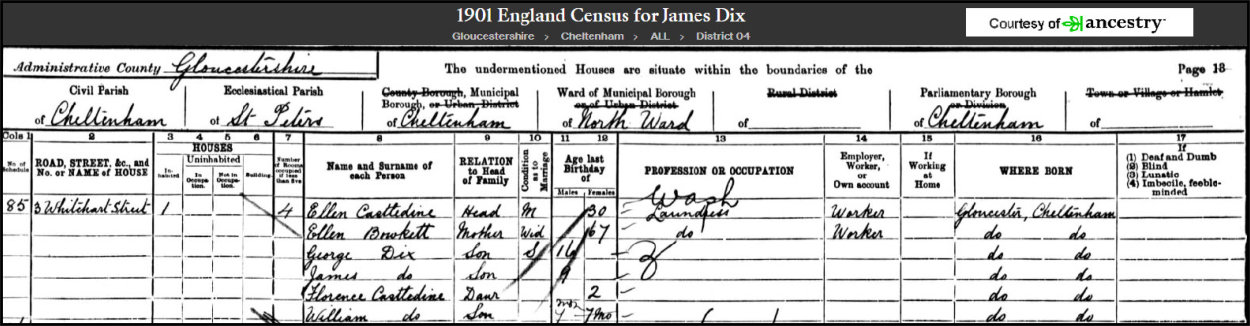 1901 England Census for James Dix
Gloucestershire > Cheltenham > ALL > District 04
Courtesy of ancestry
Administrative County Gloucestershire The undermentioned Houses are situate within the boundaries of the Page 18
Civil Parish Ecclesiastical Parish County Borough, Municipal Borough, or Urban District Ward of Municipal Borough or of Urban District Rural District Parliamentary Borough or Division Town or Village or Hamlet
of Cheltenham of St Peters of Cheltenham of North Ward of of Cheltenham of
Cols 1 2 3 4 5 6 7 8 9 10 11 12 13 14 15 16 17
No. of Schedule ROAD, STREET, &c., and No. or NAME of HOUSE HOUSES Inhabited Uninhabited In Occupation. Not in Occupation. Building Number of Rooms occupied if less than five Name and Surname of each Person RELATION to Head of Family Condition as to Marriage Age last Birthday of Males Females PROFESSION OR OCCUPATION Employer, Worker, or Own account If Working at Home WHERE BORN If (1) Deaf and Dumb (2) Blind (3) Lunatic (4) Imbecile, feeble-minded
Wash
85 3 Whitehart Street 1 4 Ellen Casttedine Head M 30 Laundress Worker Gloucester, Cheltenham
Ellen Bowkett Mother Wid 67 do Worker do do
George Dix Son S 16 do do
James do Son 9 do do
Florence Casttedine Daur 2 do do
William do Son 7 mo do do